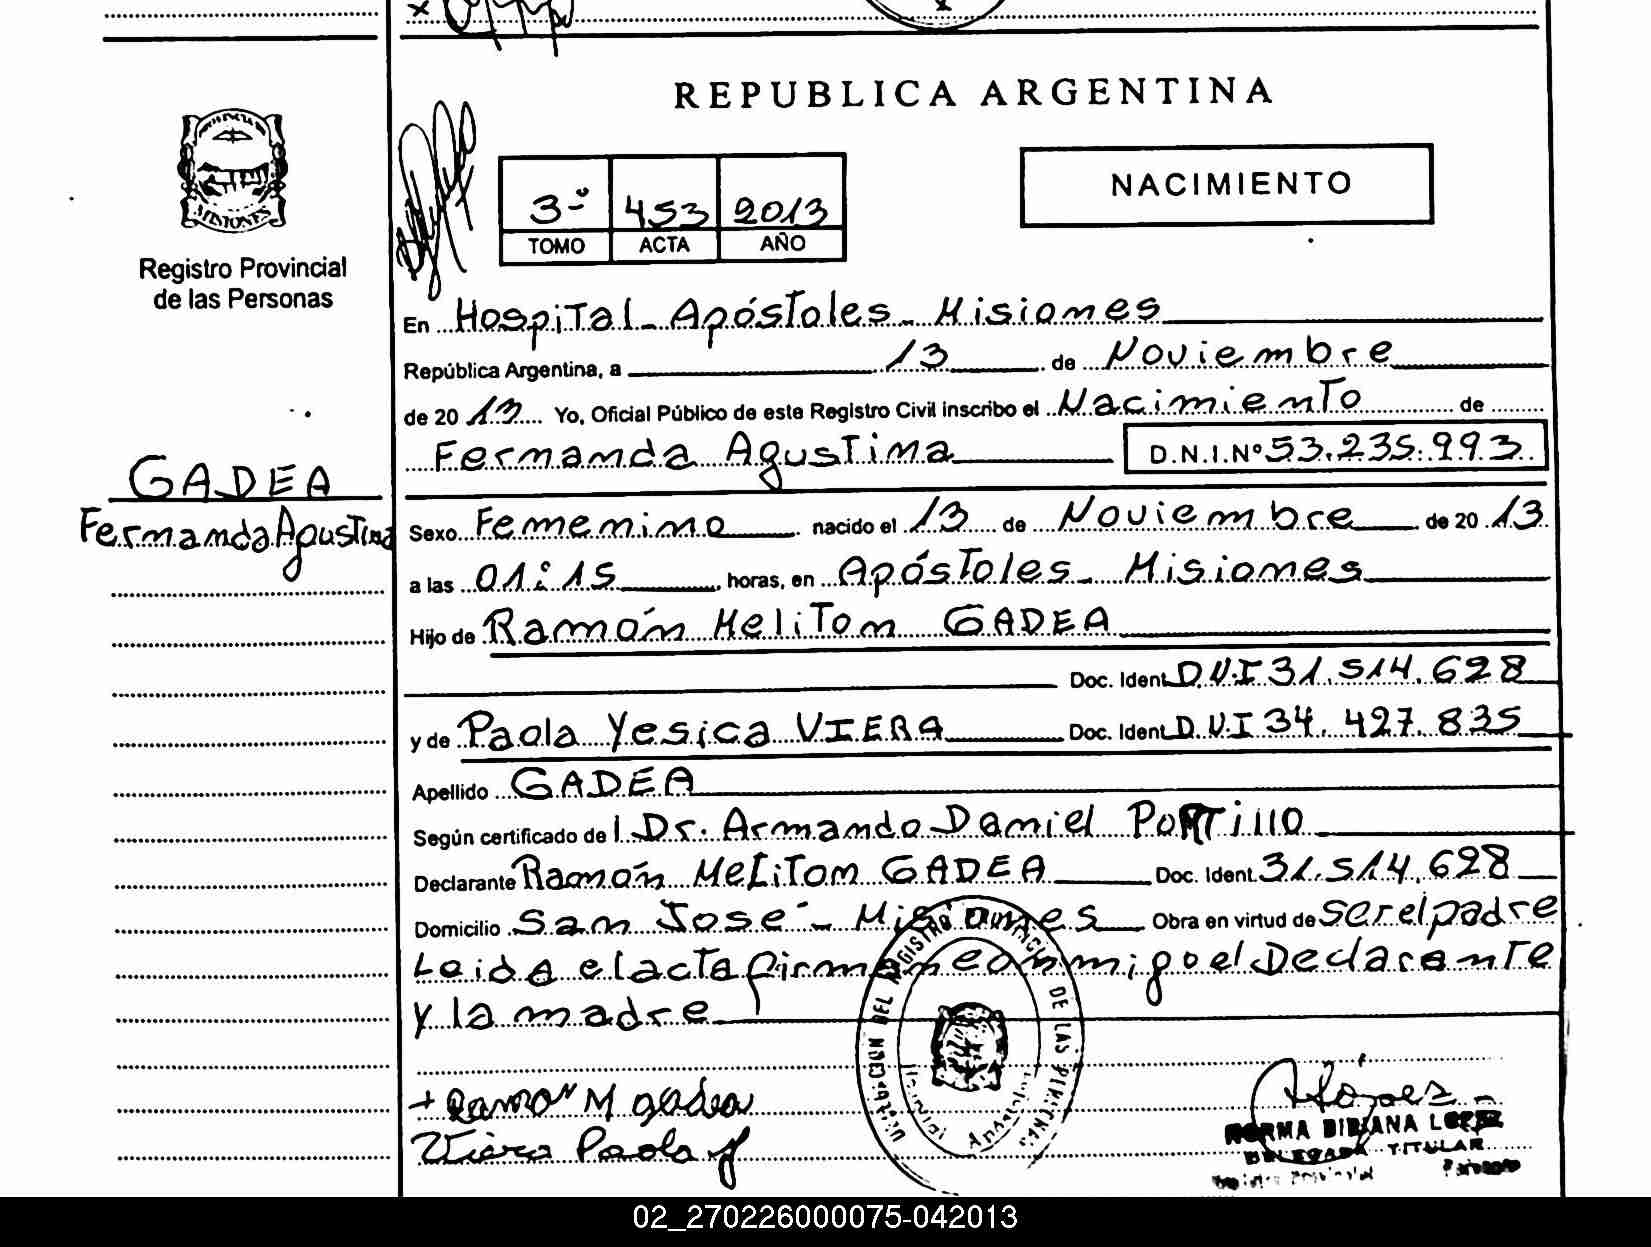 REPUBLICA ARGENTINA
MISIONES
Registro Provincial
de las Personas
3º 453 2013
TOMO ACTA AÑO
NACIMIENTO
En Hospital Apóstoles - Misiones
República Argentina, a 13 de Noviembre
de 2013 Yo, Oficial Público de este Registro Civil inscribo el Nacimiento de
Fernanda Agustina D.N.I.Nº 53.235.993
GADEA
Fernanda Agustina
Sexo Femenino nacido el 13 de Noviembre de 2013
a las 01:15 horas, en Apóstoles - Misiones
Hijo de Ramón Meliton GADEA
Doc. Ident. D.N.I 31.514.628
y de Paola Yesica VIERA Doc. Ident. D.N.I 34.427.835
Apellido GADEA
Según certificado de l Dr. Armando Daniel PORTillO
Declarante Ramón MeLiton GADEA Doc. Ident. 31.514.628
Domicilio San José - Misiones Obra en virtud de ser el padre
Leida el acta firman conmigo el Declarante
y la madre
DEL REGISTRO PROVINCIAL DE LAS PERSONAS
+ Ramon M gadea
Viera Paola y
López
NORMA BIBIANA LOPEZ
DELEGADA TITULAR
02_270226000075-042013